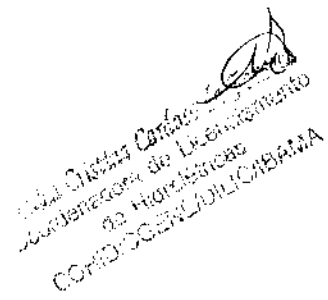 Cristina Cardoso
Coordenadora de Licenciamento
de Hidrelétricas
COHID/CGENE/DILIC/IBAMA